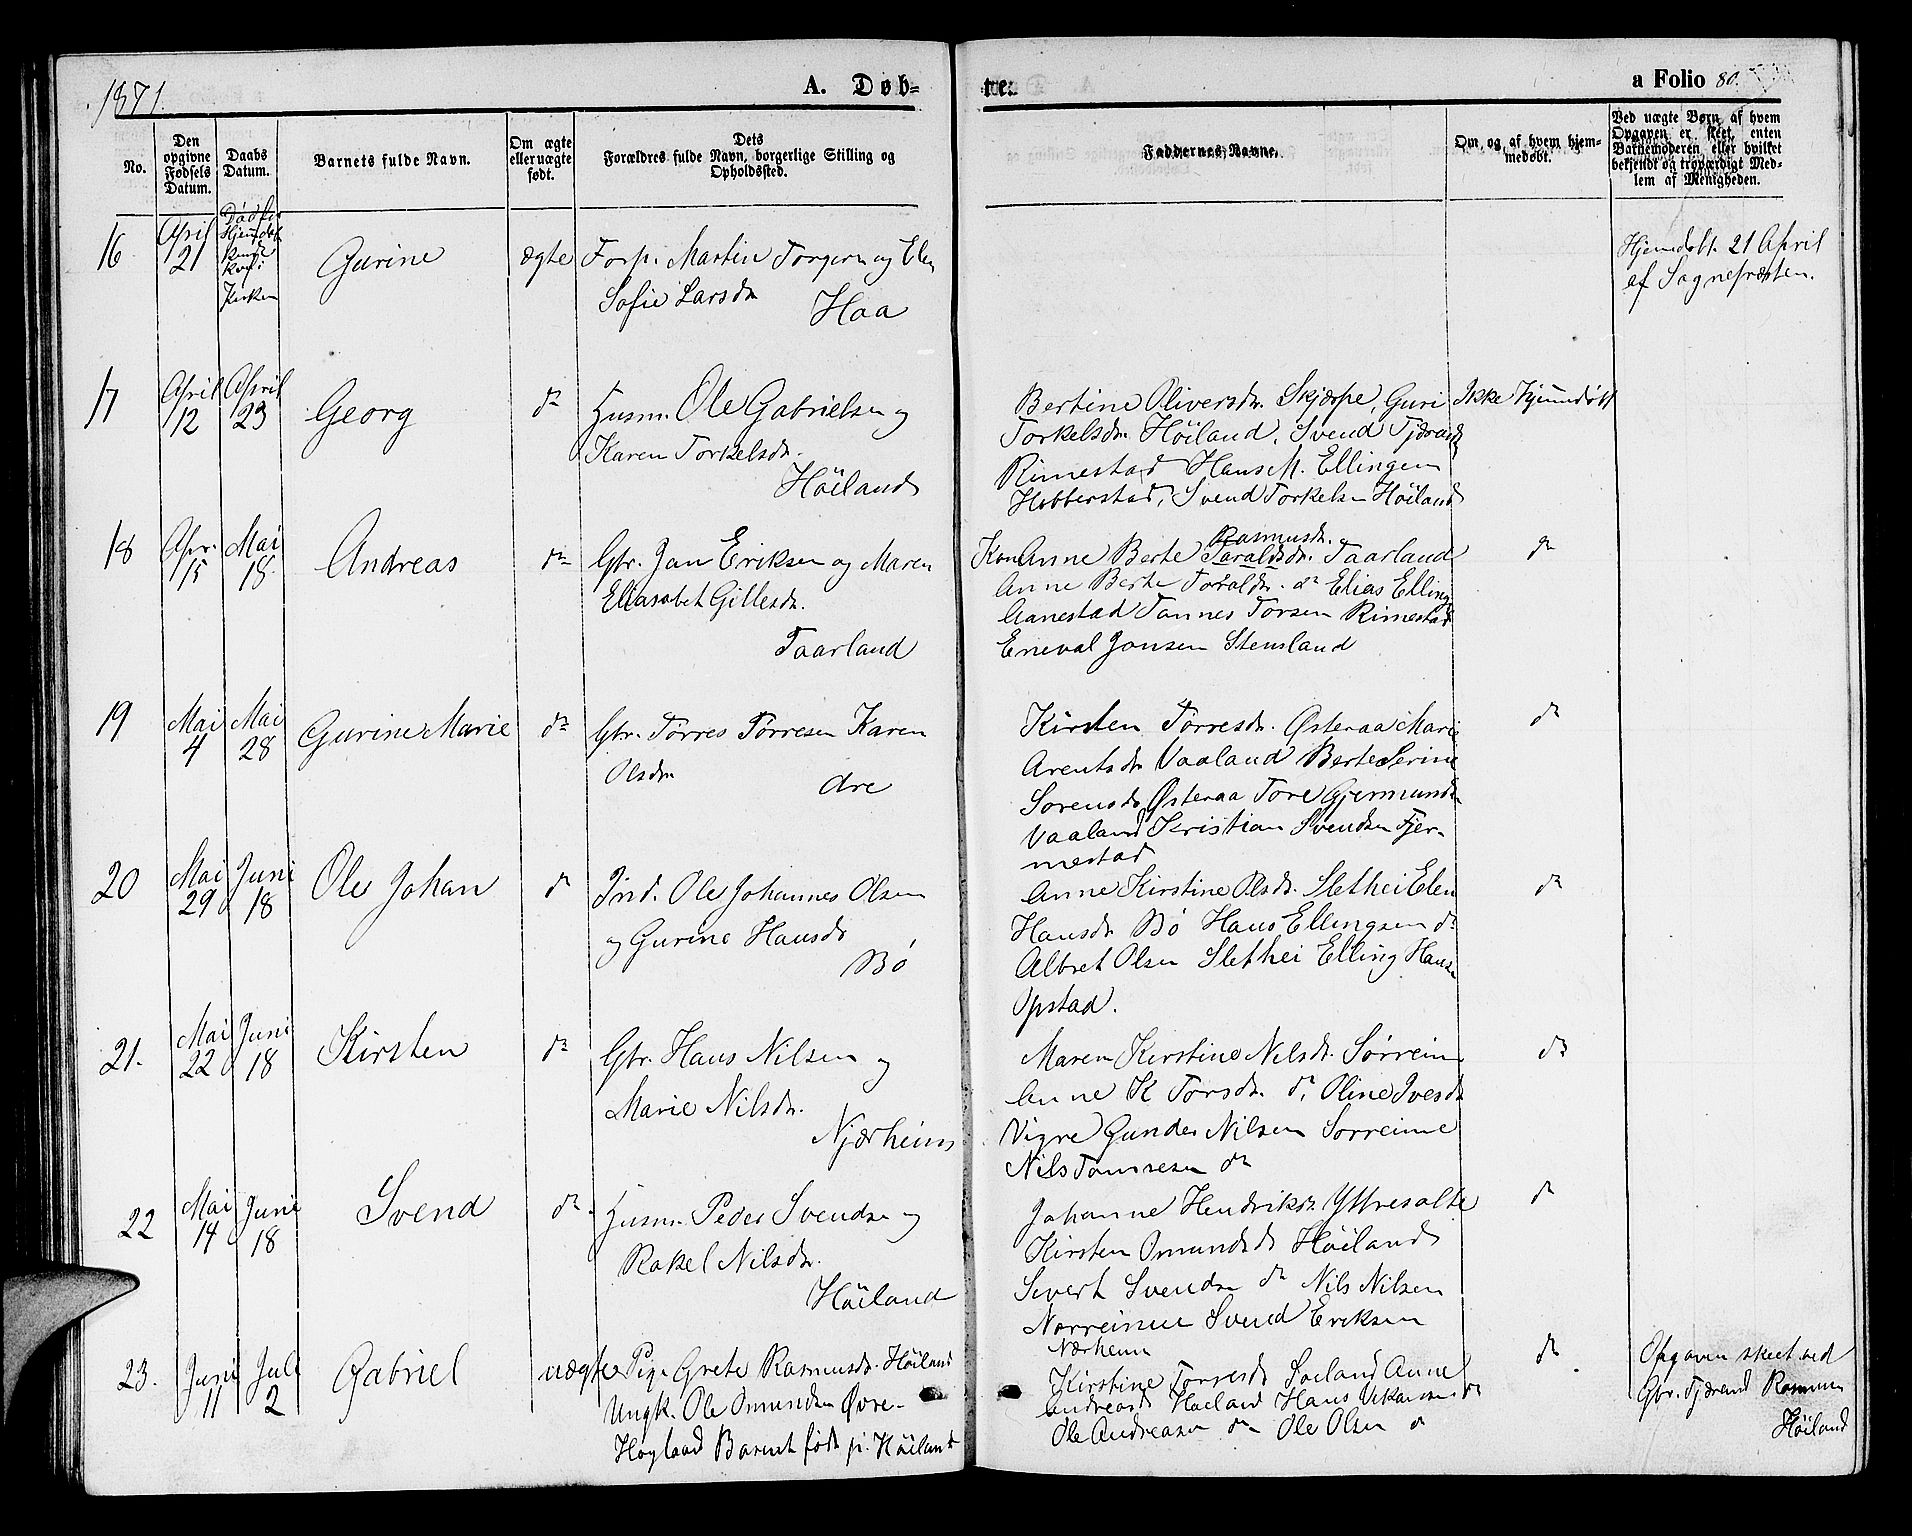 1871.
A. Døb=
te.
a Folio 80.
No.
Den opgivne Fødsels Datum.
Daabs Datum.
Barnets fulde Navn.
Om ægte eller uægte født.
Dets Forældres fulde Navn, borgerlige Stilling og Opholdssted.
Faddernes Navne.
Om, og af hvem hjem-
medøbt.
Ved uægte Børn, af hvem
Opgaven er skeet, enten
Barnemoderen eller hvilket
bekjendt og troværdigt Med-
lem af Menigheden.
16
April 21
Død før
Kirken
Gurine
ægte
Forp. Martin Torgersen og Elen
Sofie Larsdr
Haa
Hjemdøbt 21 April
af Sognepræsten.
17
April 12
April 23
Georg
do
Husm. Ole Gabrielsen og
Karen Torkelsdr.
Høiland
Bertine Oliversdr. Skjærpe, Guri
Torkelsdr. Høiland, Svend
Rimestad Hans M. Ellingsen
Hobberstad, Svend Torkelsen Høiland
Ikke hjemmedøbt
18
Apr. 15
Mai 18
Andreas
do
Gbr. Jan Eriksen og Maren
Elisabet Gillesdr.
Taarland
Rasmusdr.
Kon Anne Berte Taraldsdr. Taarland
Anne Berte Toraldsdr. do Elias Elling
Aanestad Tønnes Torsen Rimestad
Eneval Jonsen Stensland
do
19
Mai 4
Mai 28
Gurine Marie
do
Gbr. Tørres Tørresen Karen
Olsdr
Are
Kirsten Tørresdr. Østeraa Marie
Arentsdr Vaaland Berte Serine
Sørensdr Østeraa Tore Gjermunds
Vaaland Kristian Svendsen Fjer-
mestad
do
20
Mai 29
Juni 18
Ole Johan
do
Ind. Ole Johannes Olsen
og Gurine Hansdr
Bø
Anne Kirstine Olsdr. Slethei Elen
Hansdr Bø Hans Ellingsen do
Albret Olsen Slethei Elling Hansen
Opstad.
do
21.
Mai 22
Juni 18
Kirsten
do
Gbr. Hans Nilsen og
Marie Nilsdr.
Njærheim
Maren Kirstine Nilsdr. Sørreim
Anne K Torsdr. do, Oline Ivesdr
Vigre Gunder Nilsen Sørreime
Nils Tønnesen do
do
22
Mai 14
Juni 18
Svend
do.
Husm. Peder Svendsen og
Rakel Nilsdr.
Høiland
Johanne Hendriksdr. Yttresalte
Kirsten Omundsdr Høiland
Sivert Svendsen do Nils Nilsen
Nørreime Svend Eriksen
Nærheim
do
23.
Juni 11
Juli 2
Gabriel
uægte
Pige Grete Rasmusdr. Høiland
Ungk. Ole Omundsen Øvre-
Høgland Barnet født på Høiland
Kirstine Tørresdr Søiland Anne
Andreasdr Høiland Hans
Ole Andreasen do Ole Olsen do
do
Opgaven skeet ved
Gbr. Tjærand Rasmusen
Høiland